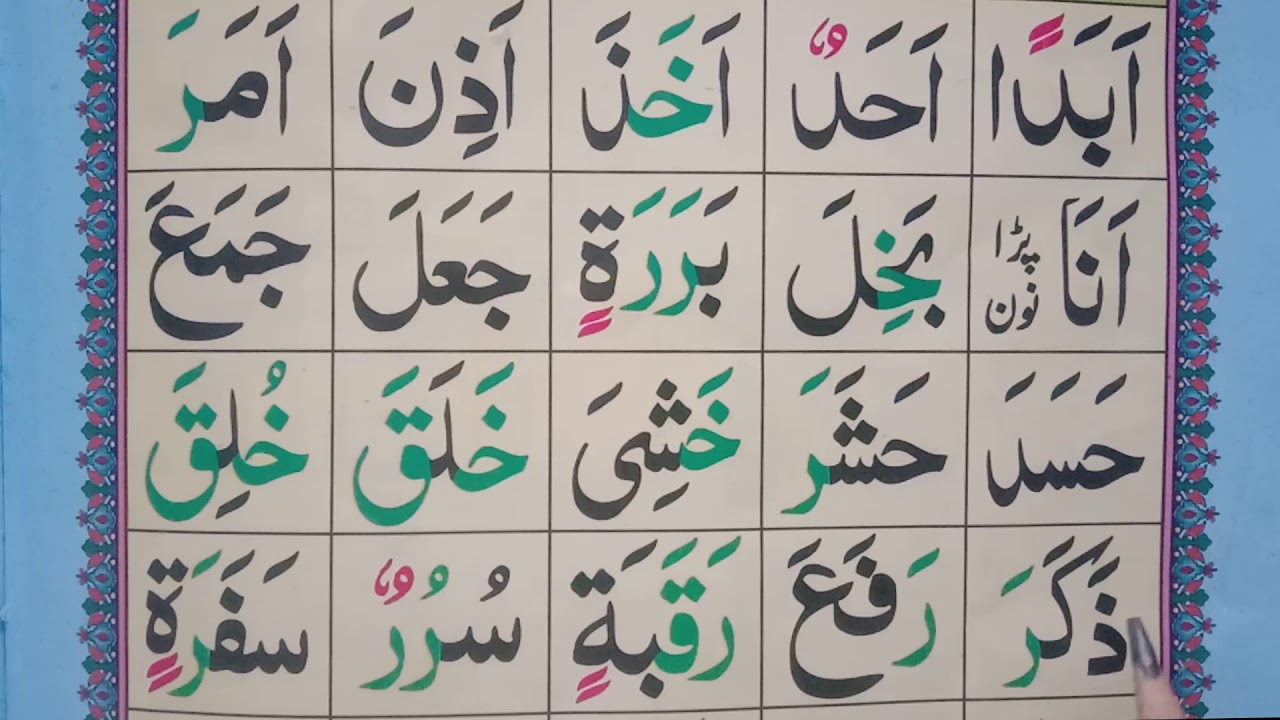 اَبَدًا اَحَدٌ اَخَذَ اَذِنَ اَمَرَ
اَنَا پڑا نون بَخِلَ بَرَرَةٍ جَعَلَ جَمَعَ
حَسَدَ حَشَرَ خَشِىَ خَلَقَ خُلِقَ
ذَكَرَ رَفَعَ رَقَبَةٍ سُرُرٌ سَفَرَةٍ